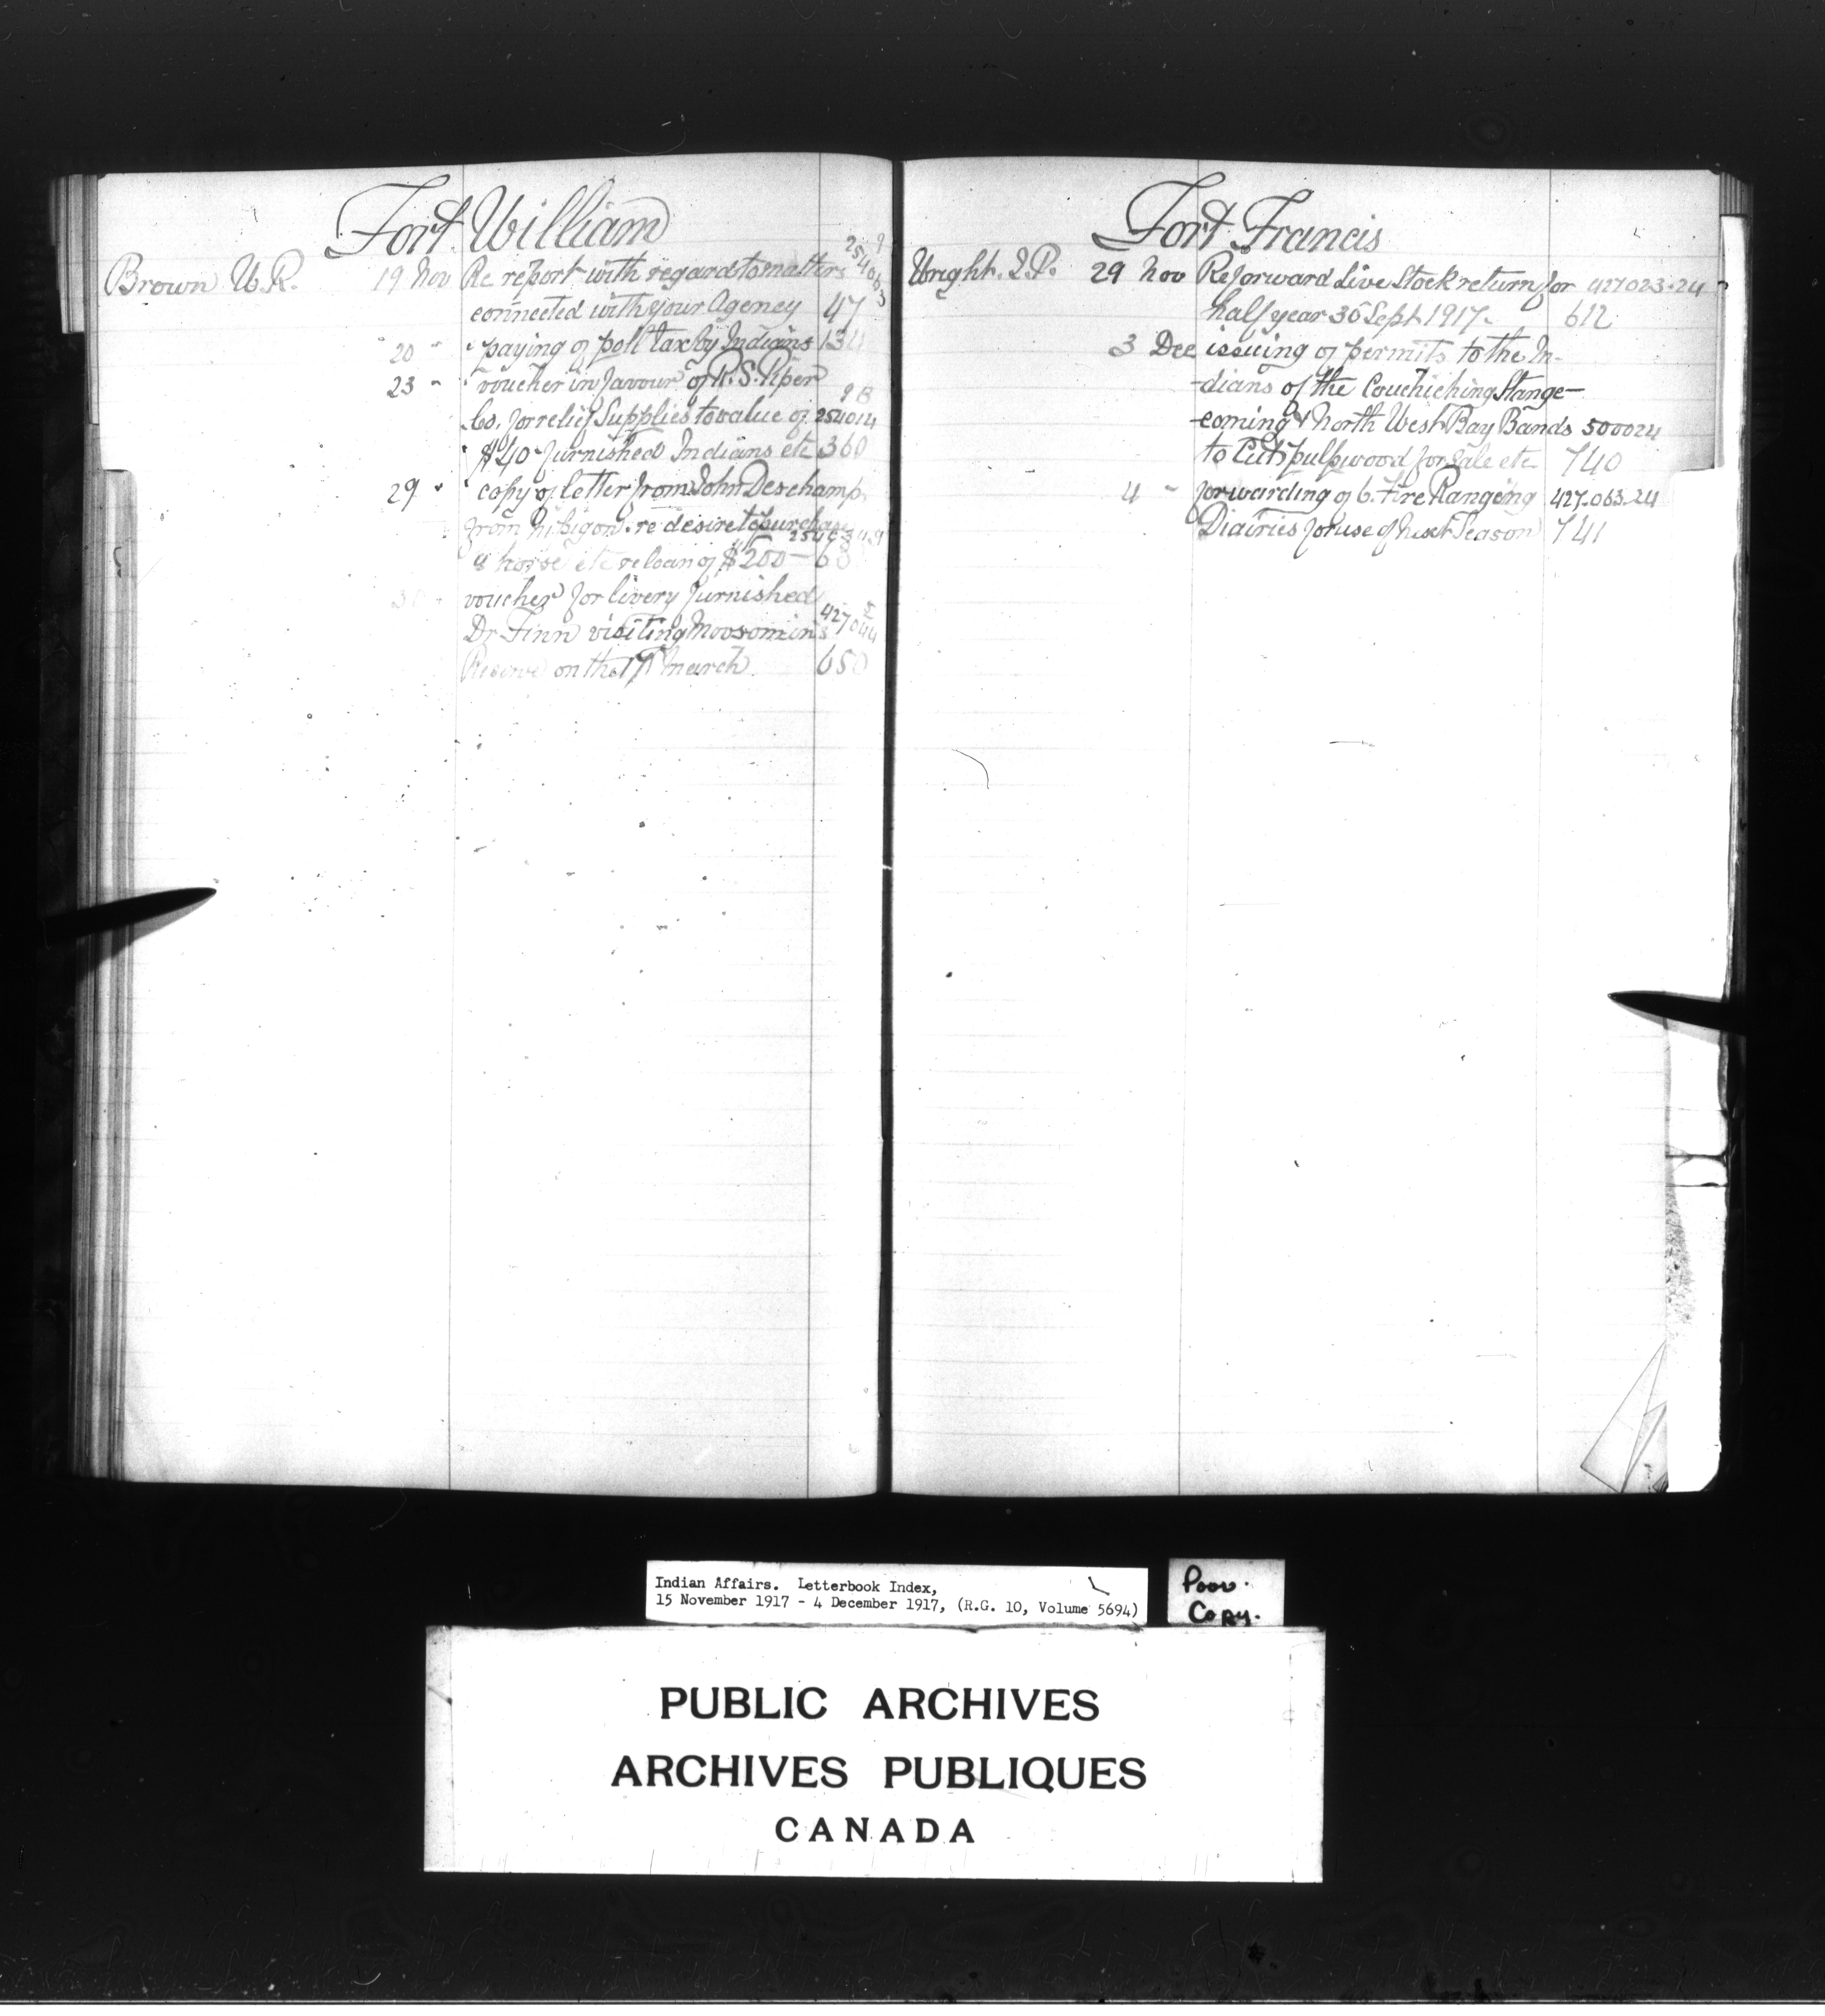 Fort William
Brown W.R. 19 Nov Re report with regard to matters 254063
connected with your Agency 47
20 " " paying of poll tax by Indians 134
23 " " voucher in favour of R. S. Piper
Co. for relief Supplies to value of 254014
" $40 - furnished Indians etc 360
29 " copy of letter from John Deschamp
from Nipigon re desire to purchase
a horse etc re loan of $200 —
30 voucher for livery furnished
Dr Finn visiting Moosomin's 427044
Reserve on the 17th March 650
Fort Francis
Wright. J.P. 29 Nov Re forward Live Stock return for 427023-24
half year 30 Sept 1917- 612
3 Dec issuing of permits to the In-
-dians of the Couchiching Stange-
-coming & North West Bay Bands 500024
to Cut pulpwood for Sale etc 740
4 " forwarding of 6 Fire Ranging 427.063-24
Diairies for use of next Season 741
Indian Affairs. Letterbook Index,
15 November 1917 - 4 December 1917, (R.G. 10, Volume 5694)
Poor.
Copy.
PUBLIC ARCHIVES
ARCHIVES PUBLIQUES
CANADA